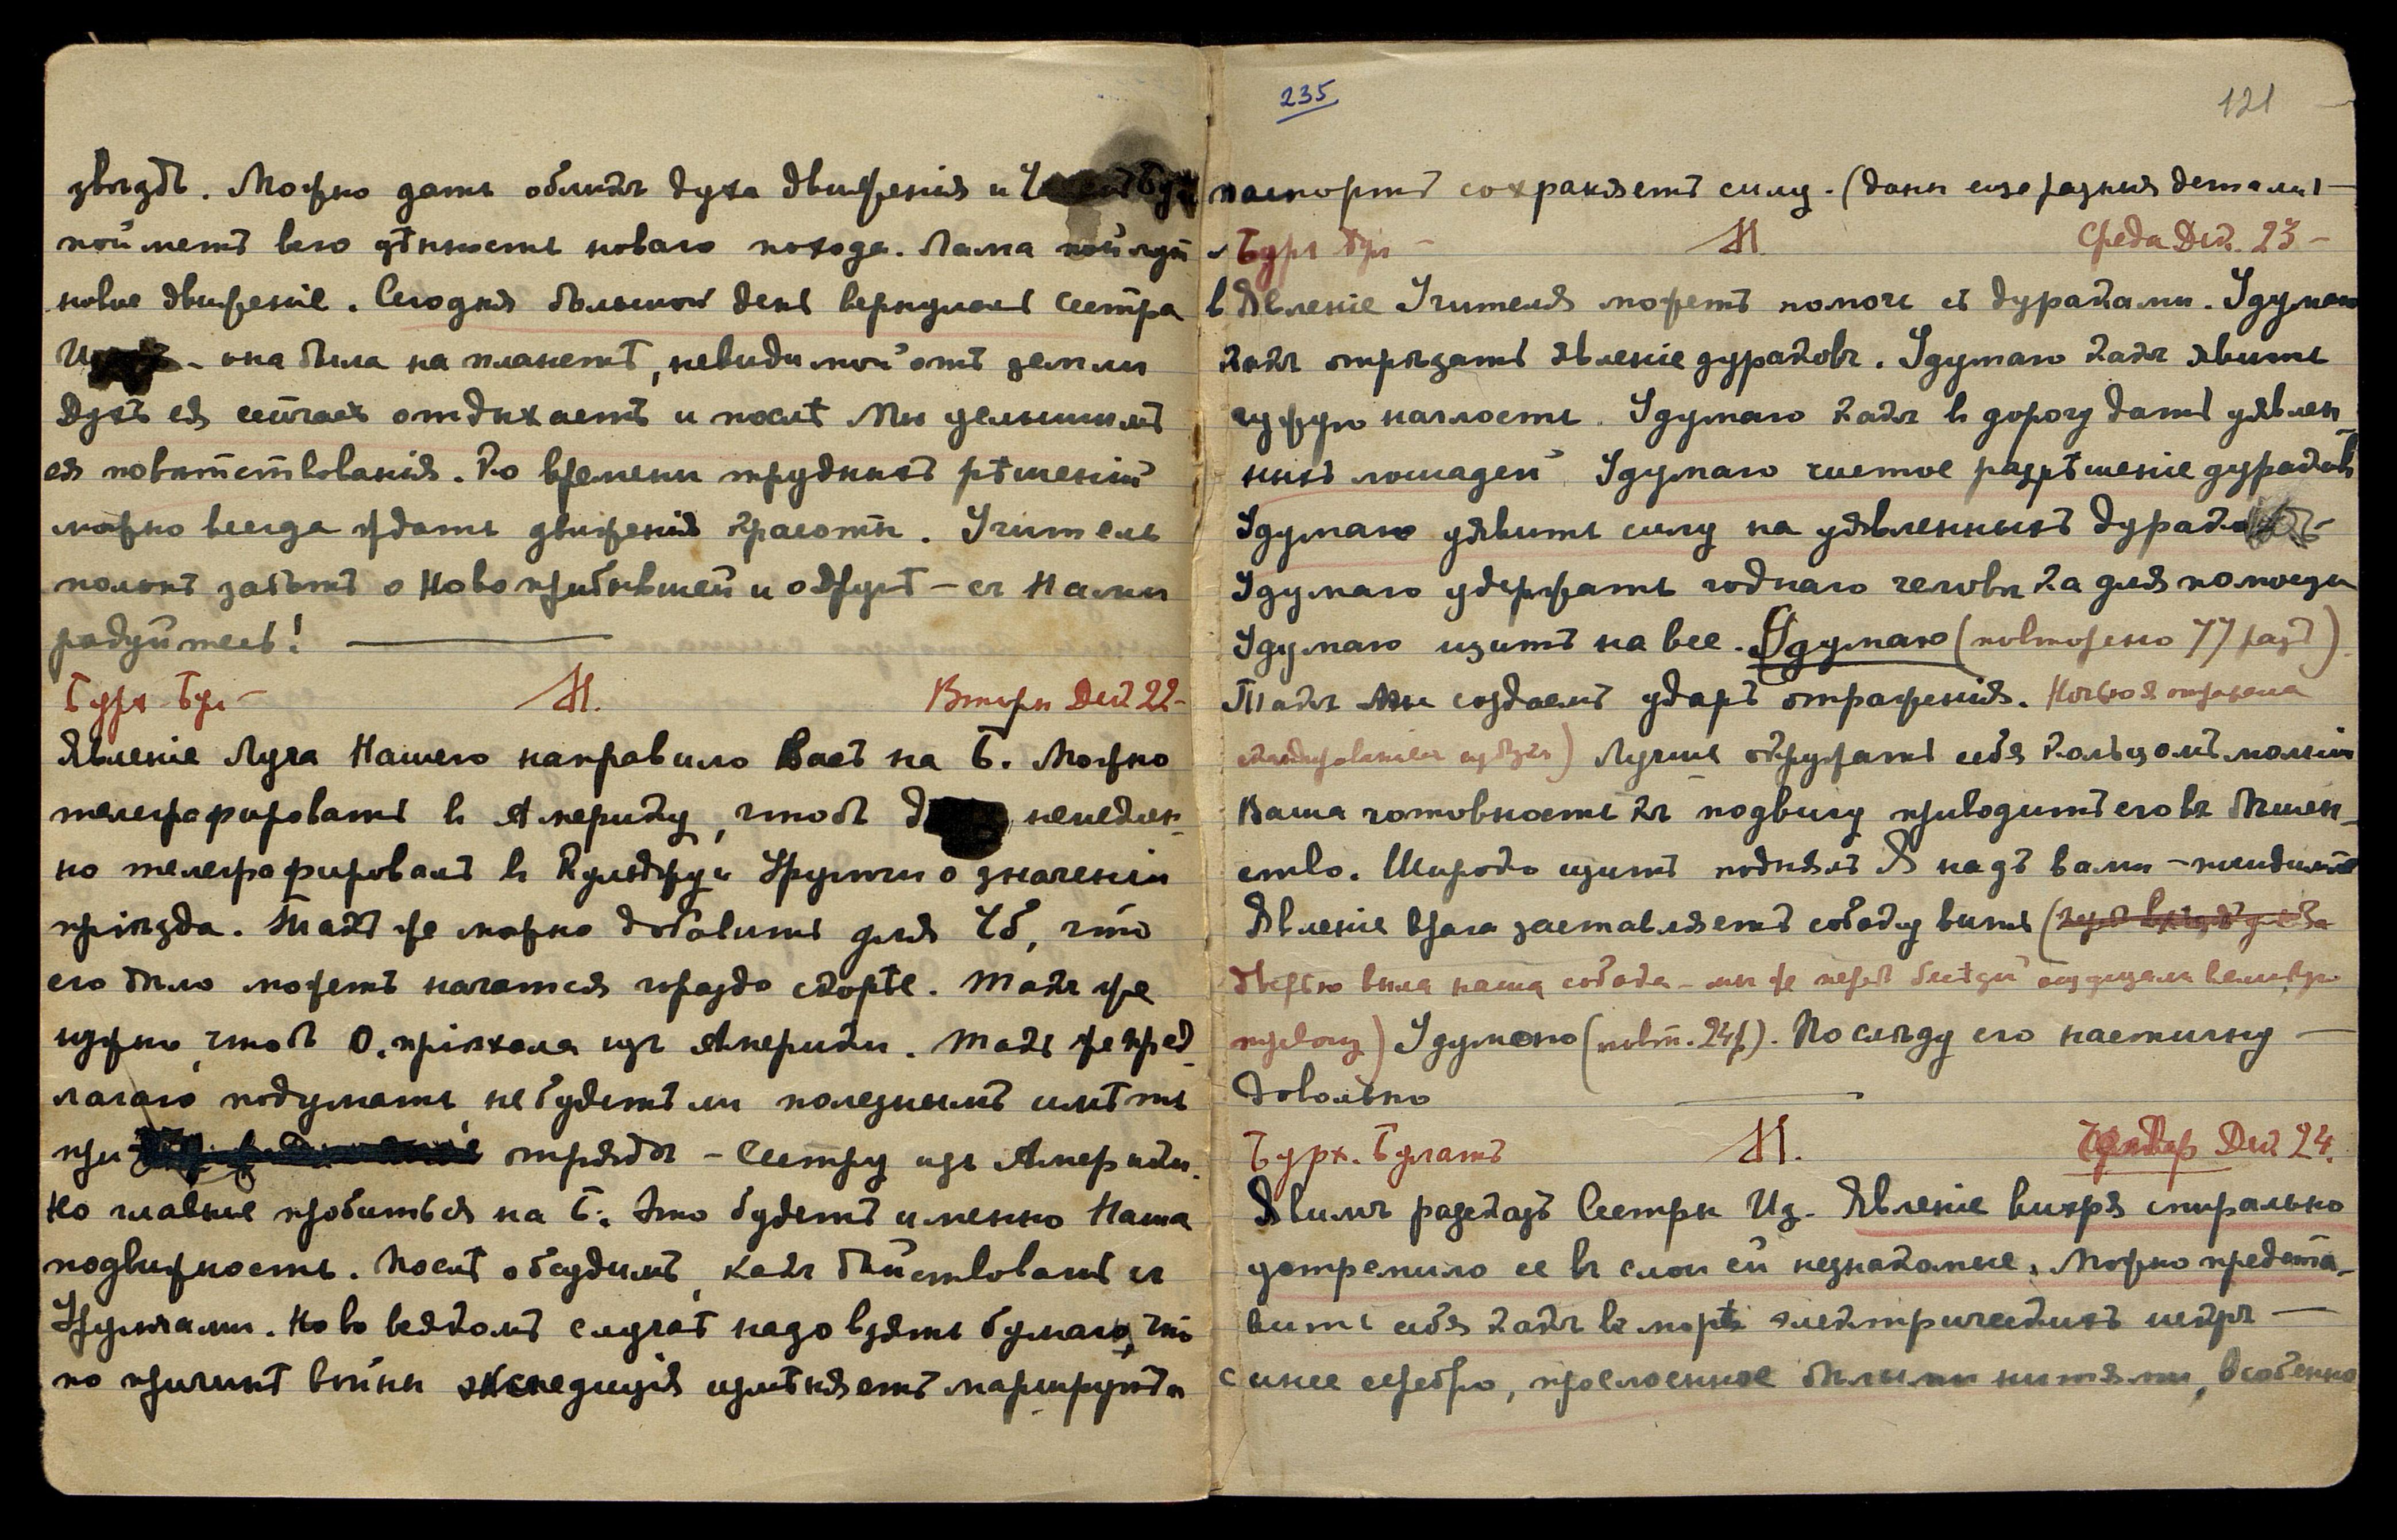 звѣздѣ. Можно дать обликъ духа движенія и
пойметъ всю цѣнность новаго похода. Лама
новое движеніе. Сегодня большой день вернулась Сестра
она была на планетѣ, невидимой отъ земли
Духъ ея сейчасъ отдыхаетъ и послѣ Мы услышимъ
ея повѣствованія. Во времени трудныхъ рѣшеній
можно всегда ждать движенія красоты. Учитель
полонъ заботъ о Новоприбывшей и о Другѣ – съ Нами
радуйтесь!
М. Вторн Дек 22-
Явленіе Луча Нашего направило Васъ на Б. Можно
телеграфировать въ Америку, чтобъ немедлен-
но телеграфировалъ въ Кульджу и Урумчи о значеніи
пріѣзда. Также можно добавить для Чб, что
его дѣло можетъ начаться гораздо скорѣе. Также
нужно, чтобъ О. пріѣхала изъ Америки. Также пред-
лагаю подумать не будетъ ли полезнымъ имѣть
при отрядѣ – Сестру изъ Америки.
Но главное пробиться на Б. Это будетъ именно Наша
подвижность. Послѣ обсудимъ, какъ дѣйствовать съ
Урумчами. Но во всякомъ случаѣ надо взять бумагу, что
по причинѣ войны экспедиція измѣняетъ маршрутъ и
235
121
паспортъ сохраняетъ силу. (Даны еще разныя детали –
М. Среда Дек. 23 –
Явленіе Учителя можетъ помочь съ дураками. Удумаю
какъ отрѣзать явленіе дураковъ. Удумаю какъ явить
чужую наглость. Удумаю какъ въ дорогу дать уявлен-
ныхъ лошадей. Удумаю чистое разрѣшеніе дураковъ
Удумаю уявить силу на уявленныхъ
Удумаю удержать годнаго человѣка для помощи
Удумаю щитъ на все. Удумаю (повторено 77 разъ)
Такъ Мы создаемъ ударъ отраженія. Ночью я
Лучше окружать себя кольцомъ молній
Ваша готовность къ подвигу приводитъ его въ бѣшен-
ство. Широко щитъ поднялъ Я надъ вами –
Явленіе врага заставляетъ собаку выть (
дверью выла наша собака – мы же передъ бесѣдой ощущали
тревогу) Удумано (повт. 24 р). По слѣду его настигну –
Довольно
Бурх. Булатъ М. Дек 24.
Явимъ разсказъ Сестры Из. Явленіе вихря спирально
устремило ее въ слои ей незнакомые. Можно предста-
вить себя какъ въ морѣ электрическихъ искръ –
синее серебро, прослоенное бѣлыми нитями, особенно